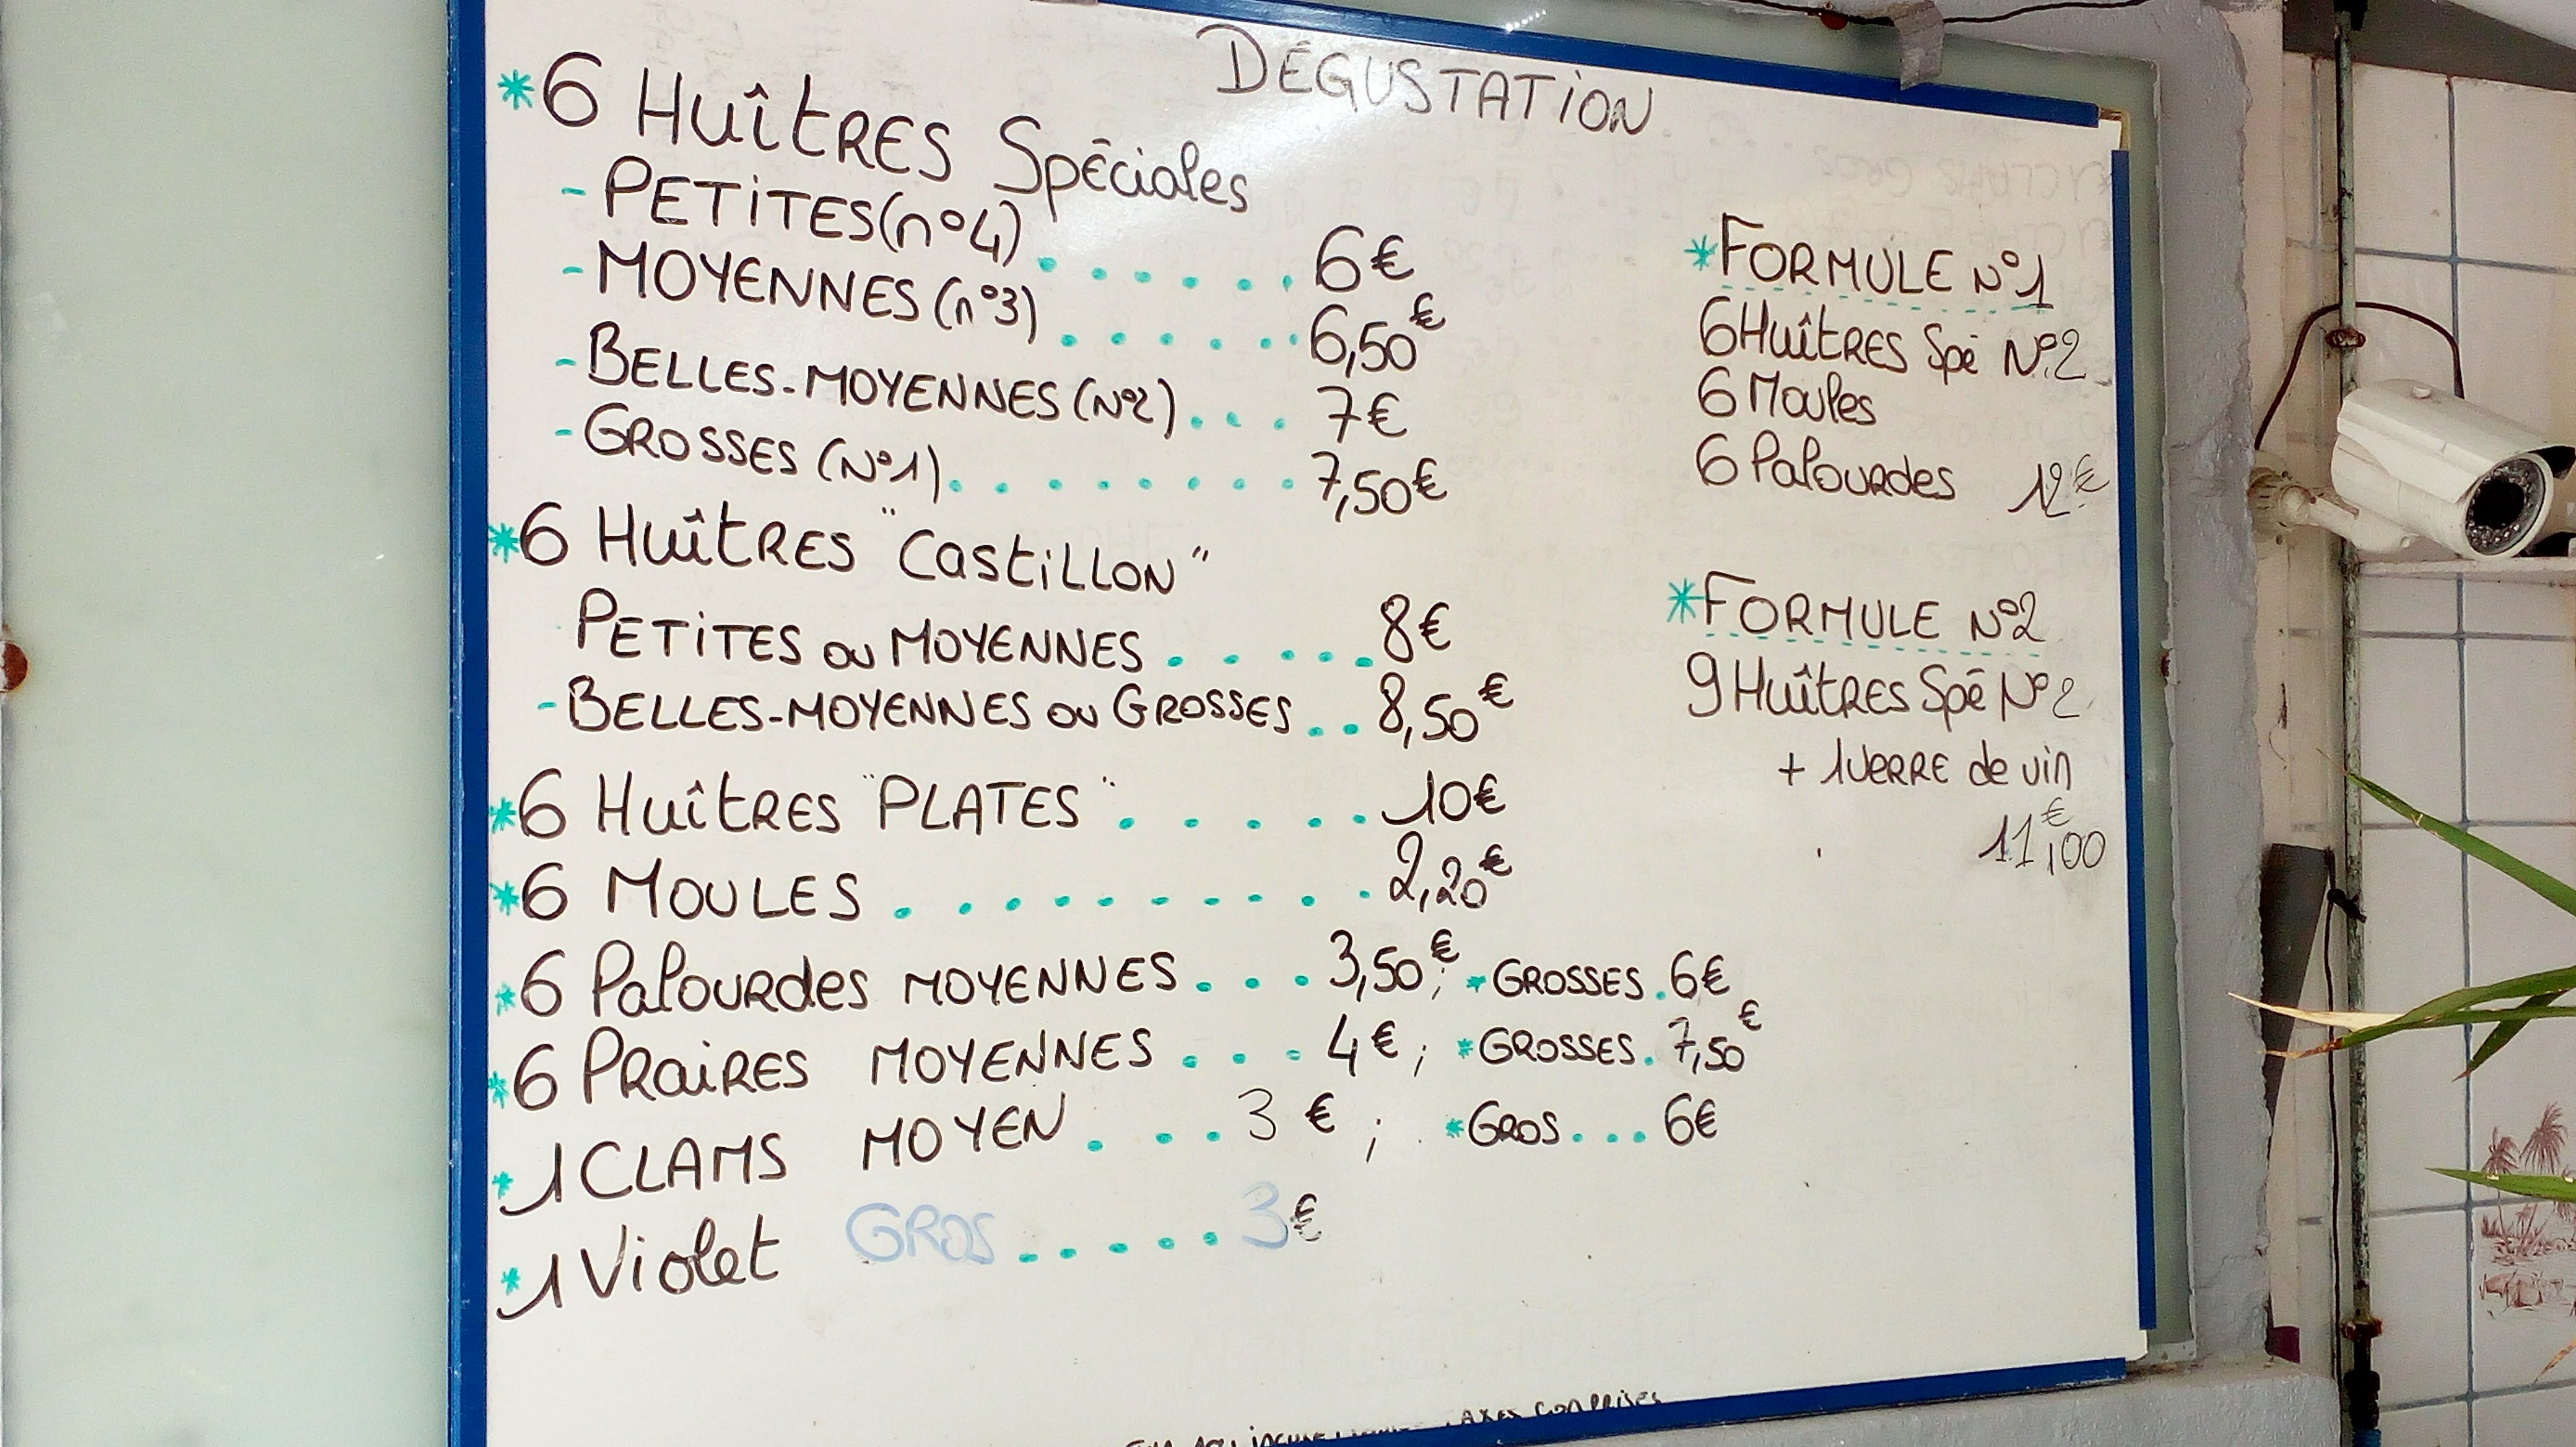 DÉGUSTATION
*6 HUîtRES Spéciales
- PETITES (n°4) ...... 6€
- MOYENNES (n°3) ...... 6,50€
- BELLES-MOYENNES (N°2) ... 7€
- GROSSES (N°1) ........ 7,50€
*6 HUîtRES "CAStiLLON"
PETITES ou MOYENNES ..... 8€
- BELLES-MOYENNES ou GROSSES .. 8,50€
*6 HUîtRES "PLATES" ..... 10€
*6 MOULES ......... 2,20€
*6 Palourdes MOYENNES ... 3,50€ ; *GROSSES . 6€
*6 PRaiRES MOYENNES ... 4€ ; *GROSSES . 7,50€
*1 CLAMS MOYEN .... 3€ ; *GROS ... 6€
*1 Violet GROS ...... 3€
*FORMULE N°1
6 HUîtRES Spé N°2
6 Moules
6 Palourdes 12€
*FORMULE N°2
9 HUîtRES Spé N°2
+ 1 VERRE de vin
11€,00
COMPRISES